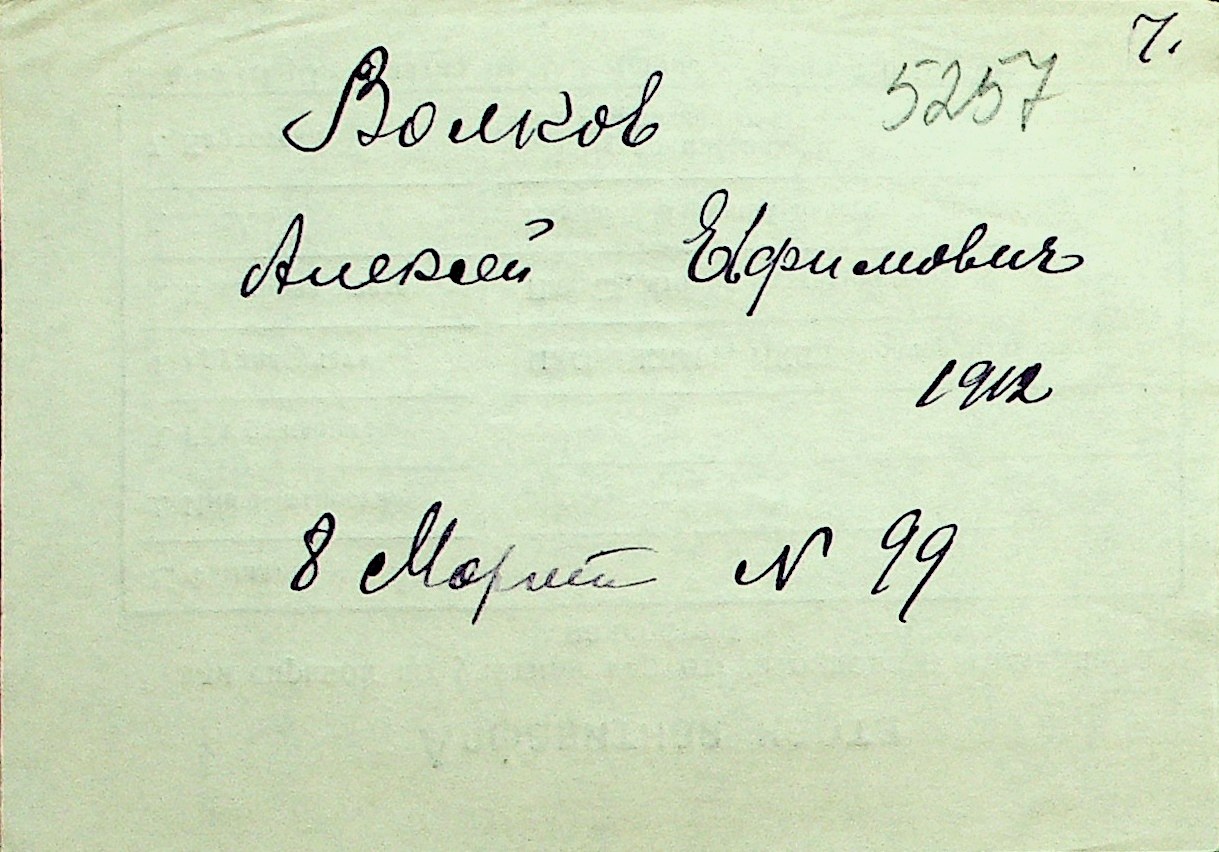 7.
5257
Волков
Алексей Ефимович
1912
8 Марта N 99